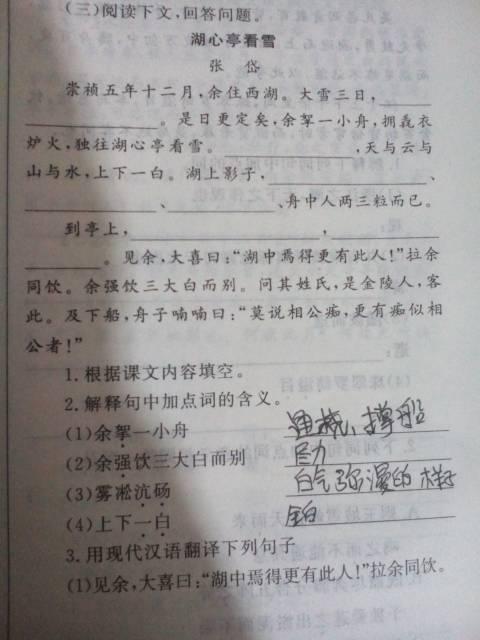 (三)阅读下文,回答问题。
湖心亭看雪
张 岱
崇祯五年十二月,余住西湖。大雪三日,______
____________。是日更定矣,余挐一小舟,拥毳衣
炉火,独往湖心亭看雪。____________,天与云与
山与水,上下一白。湖上影子,____________、
____________、__________、舟中人两三粒而已。
到亭上,________________,__________
________。见余,大喜曰:“湖中焉得更有此人!”拉余
同饮。余强饮三大白而别。问其姓氏,是金陵人,客
此。及下船,舟子喃喃曰:“莫说相公痴,更有痴似相
公者!”
1.根据课文内容填空。
2.解释句中加点词的含义。
(1)余挐一小舟 通桡、撑船
(2)余强饮三大白而别 尽力
(3)雾凇沆砀 白气弥漫的样子
(4)上下一白 全白
3.用现代汉语翻译下列句子
(1)见余,大喜曰:“湖中焉得更有此人!”拉余同饮。